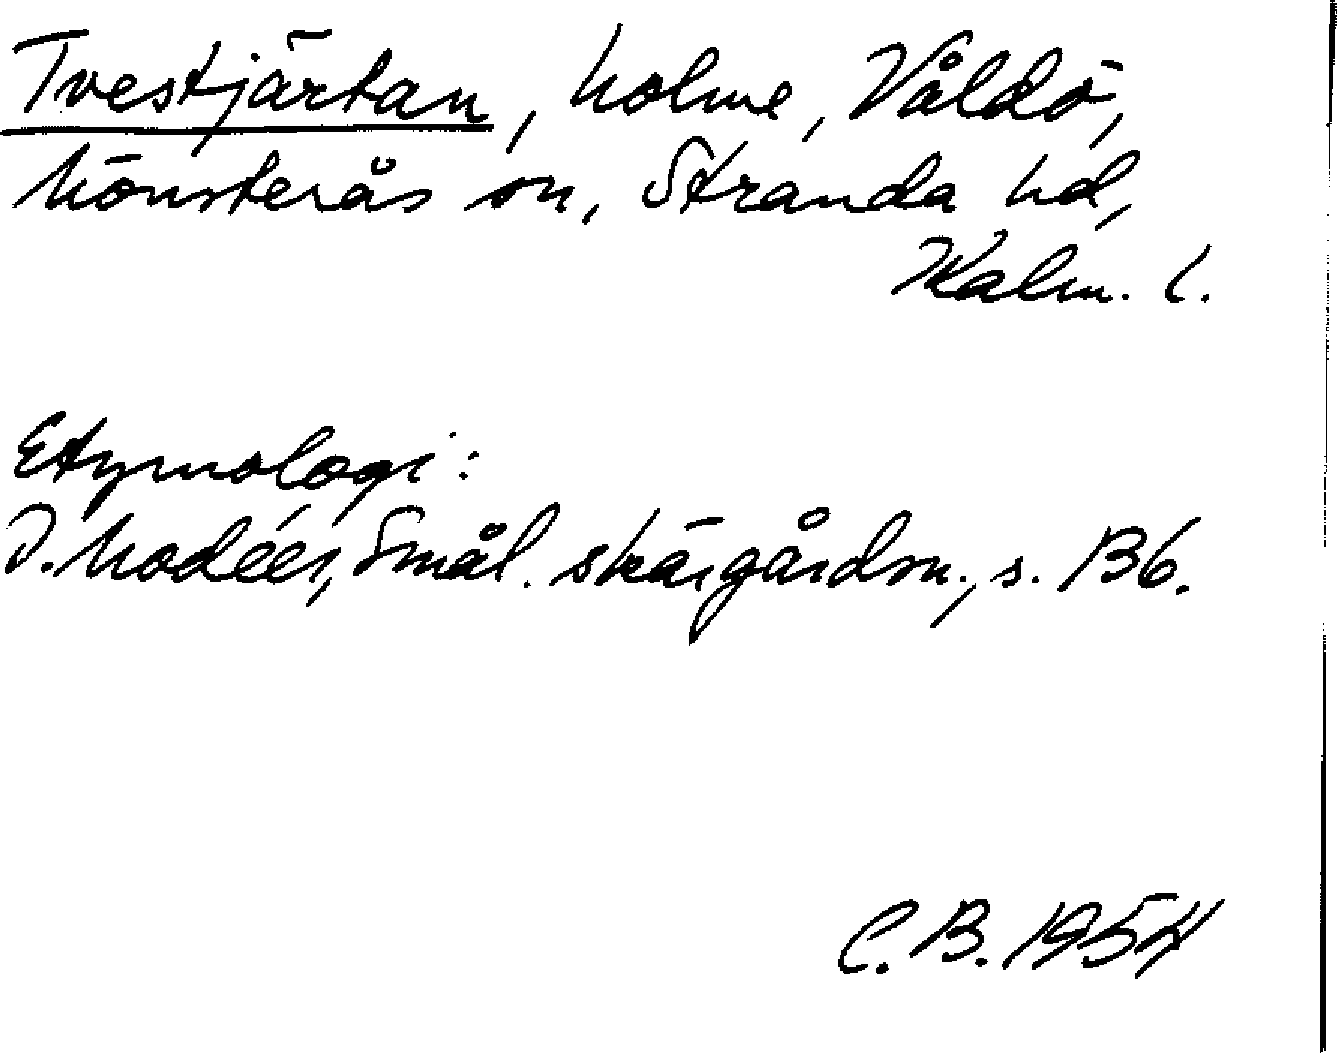 Tvestjärtan, holme, Våldö,
Mönsterås sn, Stranda hd,
Kalm. l.
Etymologi:
I. Modéer, Smål. skärgårdsn., s. 136.
C. B. 1954